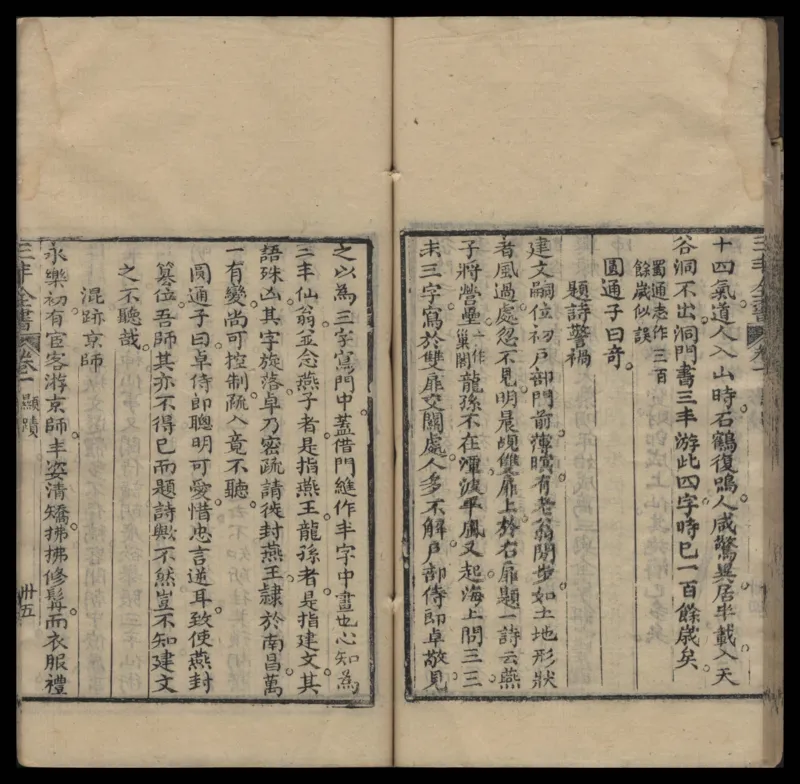 三丰全書 卷一
十四氣道人入山時石鶴復鳴人咸驚異居半載入天
谷洞不出洞門書三丰游此四字時已一百餘歲矣
蜀通志作三百
餘歲似誤
圓通子曰奇
題詩警禍
建文嗣位初戶部門前薄暝有老翁閒步如土地形狀
者風過處忽不見明晨覘雙扉上於右扉題一詩云燕
子將營壘一作巢閣龍孫不在潭波平風又起海上問三三
末三字寫於雙扉交關處人多不解戶部侍郎卓敬見
之以為三字寫門中蓋借門縫作丰字中畫也心知為
三丰仙翁並念燕子者是指燕王龍孫者是指建文其
語殊凶其字旋落卓乃密疏請徙封燕王隷於南昌萬
一有變尚可控制疏入竟不聽
圓通子曰卓侍郎聰明可愛惜忠言逆耳致使燕封
篡位吾師其亦不得已而題詩歟不然豈不知建文
之不聽哉
混跡京師
永樂初有宦客游京師丰姿清矯拂拂修髯而衣服禮
三丰全書 卷一 顯蹟 卅五